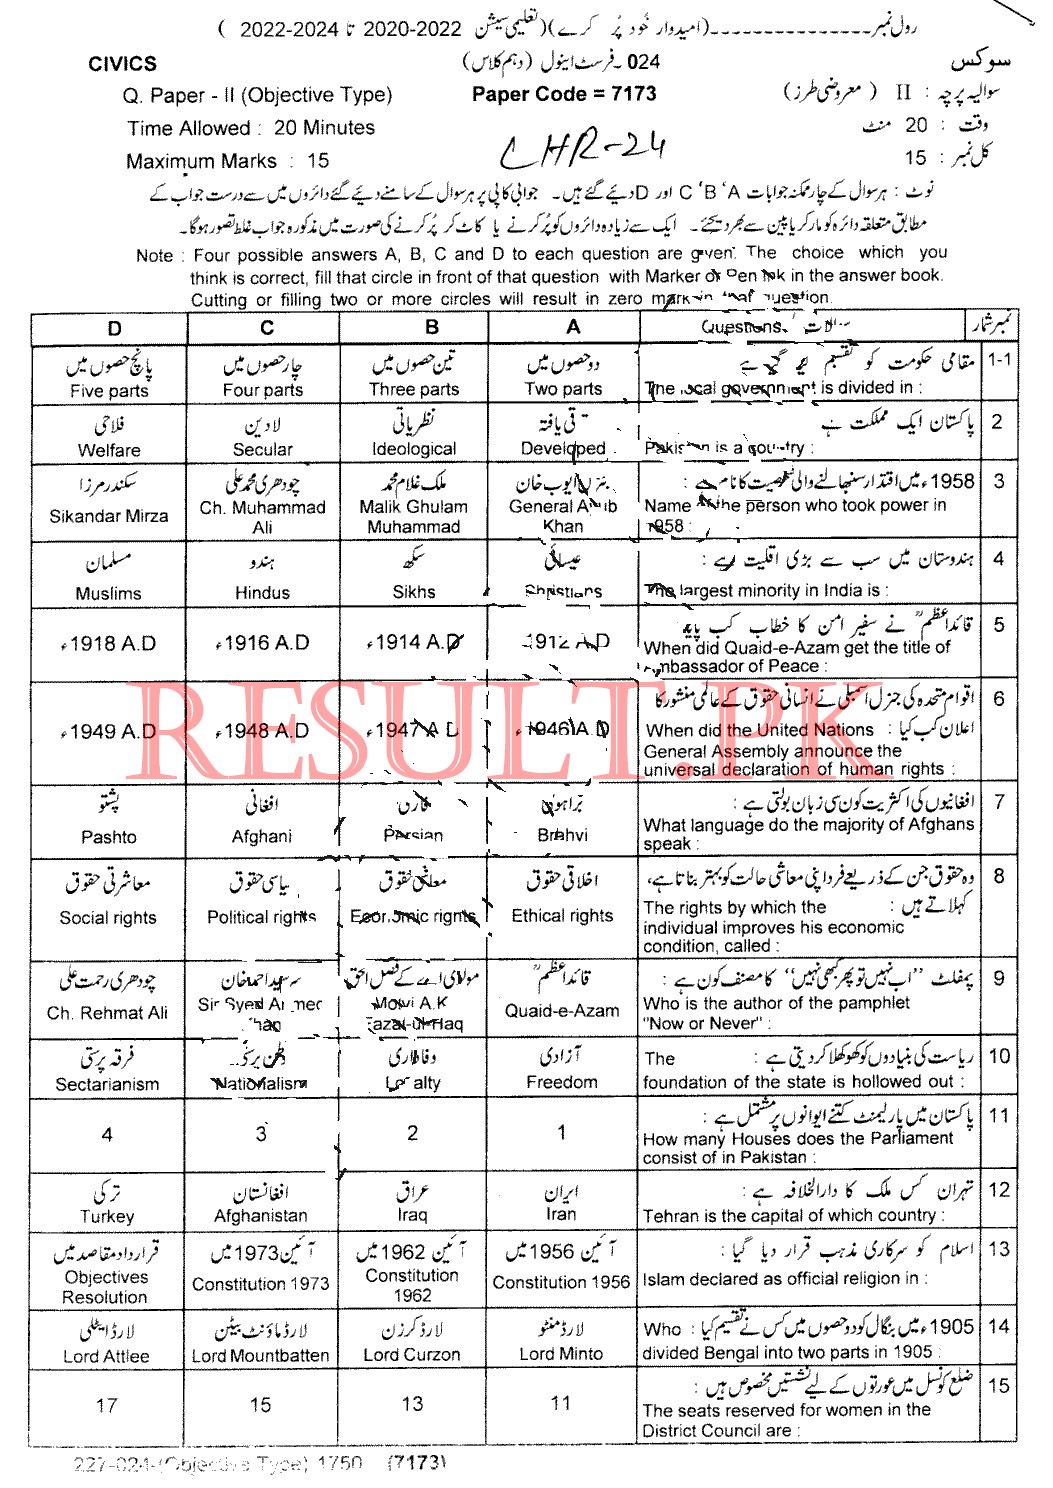 رول نمبر ـــــــــــــــ (امیدوار خود پُر کرے) (تعلیمی سیشن 2022-2020 تا 2024-2022 )
سوکس 024 ۔ فرسٹ اینول (دہم کلاس) CIVICS
سوالیہ پرچہ : II ( معروضی طرز) Paper Code = 7173 Q. Paper - II (Objective Type)
وقت : 20 منٹ Time Allowed : 20 Minutes
کل نمبر : 15 Maximum Marks : 15
LHR-24
نوٹ : ہر سوال کے چار ممکنہ جوابات A ، B ، C اور D دیئے گئے ہیں۔ جوابی کاپی پر ہر سوال کے سامنے دیئے گئے دائروں میں سے درست جواب کے
مطابق متعلقہ دائرہ کو مارکر یا پین سے بھر دیجئے۔ ایک سے زیادہ دائروں کو پُر کرنے یا کاٹ کر پُر کرنے کی صورت میں مذکورہ جواب غلط تصور ہوگا۔
Note : Four possible answers A, B, C and D to each question are given. The choice which you
think is correct, fill that circle in front of that question with Marker or Pen Ink in the answer book.
Cutting or filling two or more circles will result in zero mark in that question.
D C B A Questions. سوالات نمبر شمار
پانچ حصوں میں چار حصوں میں تین حصوں میں دو حصوں میں مقامی حکومت کو تقسیم کیا گیا ہے 1-1
Five parts Four parts Three parts Two parts The local government is divided in :
فلاحی لادین نظریاتی ترقی یافتہ پاکستان ایک مملکت ہے 2
Welfare Secular Ideological Developed Pakistan is a country :
سکندر مرزا چودھری محمد علی ملک غلام محمد جنرل ایوب خان 1958ء میں اقتدار سنبھالنے والی شخصیت کا نام ہے : 3
Sikandar Mirza Ch. Muhammad Ali Malik Ghulam Muhammad General Ayub Khan Name the person who took power in
1958 :
مسلمان ہندو سکھ عیسائی ہندوستان میں سب سے بڑی اقلیت ہے : 4
Muslims Hindus Sikhs Christians The largest minority in India is :
قائداعظمؒ نے سفیر امن کا خطاب کب پایا 5
1918 A.D ء 1916 A.D ء 1914 A.D ء 1912 A.D When did Quaid-e-Azam get the title of
Ambassador of Peace :
اقوام متحدہ کی جنرل اسمبلی نے انسانی حقوق کے عالمی منشور کا 6
1949 A.D ء 1948 A.D ء 1947 A.D ء 1946 A.D ء When did the United Nations اعلان کب کیا :
General Assembly announce the
universal declaration of human rights :
پشتو افغانی فارسی براہوی افغانیوں کی اکثریت کون سی زبان بولتی ہے : 7
Pashto Afghani Persian Brahvi What language do the majority of Afghans
speak :
معاشرتی حقوق سیاسی حقوق معاشی حقوق اخلاقی حقوق وہ حقوق جن کے ذریعے فرد اپنی معاشی حالت کو بہتر بناتا ہے، 8
Social rights Political rights Economic rights Ethical rights The rights by which the کہلاتے ہیں :
individual improves his economic
condition, called :
چودھری رحمت علی سرسید احمد خان مولوی اے کے فضل الحق قائداعظمؒ پمفلٹ "اب نہیں تو پھر کبھی نہیں" کا مصنف کون ہے : 9
Ch. Rehmat Ali Sir Syed Ahmed Khan Molvi A.K Fazal-ul-Haq Quaid-e-Azam Who is the author of the pamphlet
"Now or Never" :
فرقہ پرستی وطن پرستی وفاداری آزادی The ریاست کی بنیادوں کو کھوکھلا کر دیتی ہے : 10
Sectarianism Nationalism Loyalty Freedom foundation of the state is hollowed out :
پاکستان میں پارلیمنٹ کتنے ایوانوں پر مشتمل ہے : 11
4 3 2 1 How many Houses does the Parliament
consist of in Pakistan :
ترکی افغانستان عراق ایران تہران کس ملک کا دارالخلافہ ہے : 12
Turkey Afghanistan Iraq Iran Tehran is the capital of which country :
قرارداد مقاصد میں آئین 1973 میں آئین 1962 میں آئین 1956 میں اسلام کو سرکاری مذہب قرار دیا گیا : 13
Objectives Resolution Constitution 1973 Constitution 1962 Constitution 1956 Islam declared as official religion in :
لارڈ ایٹلی لارڈ ماؤنٹ بیٹن لارڈ کرزن لارڈ منٹو Who : 1905ء میں بنگال کو دو حصوں میں کس نے تقسیم کیا 14
Lord Attlee Lord Mountbatten Lord Curzon Lord Minto divided Bengal into two parts in 1905 :
ضلع کونسل میں عورتوں کے لیے نشستیں مخصوص ہیں : 15
17 15 13 11 The seats reserved for women in the
District Council are :
227-024-(Objective Type) 1750 (7173)
RESULT.PK